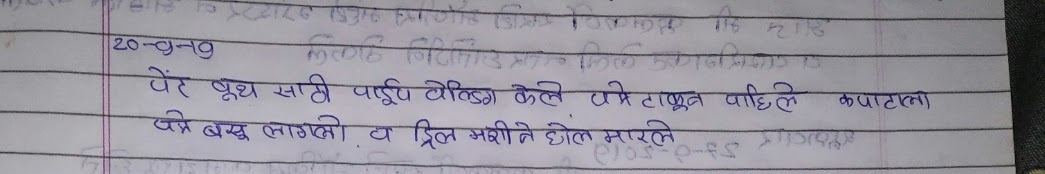 20-9-19
पेंट बुथ साठी पाईप वेल्डिंग केले पत्रे टाकून पाहिले कपाटाला
पत्रे बसू लागलो. व ड्रिल मशीने होल मारले